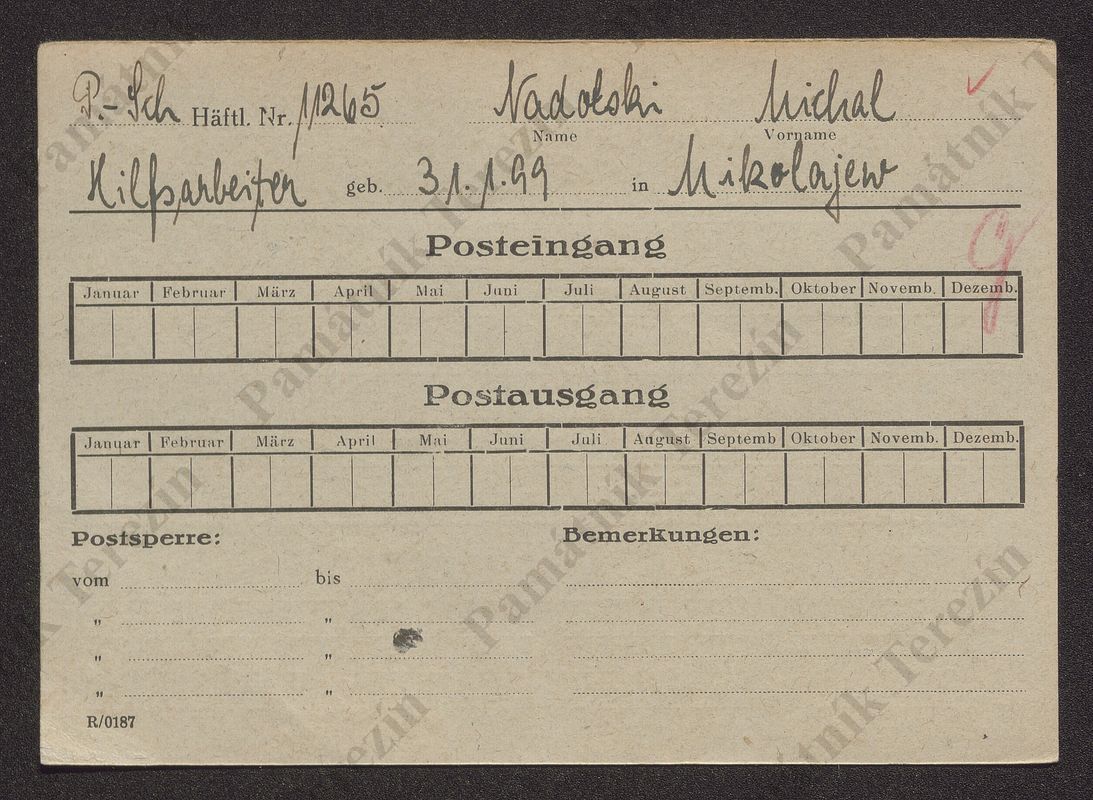 P.- Sch Häftl. Nr. 11265 Nadolski Michal
Name Vorname
Hilfsarbeiter geb. 31.1.99 in Mikolajew
Posteingang
Januar Februar März April Mai Juni Juli August Septemb. Oktober Novemb. Dezemb.
Postausgang
Januar Februar März April Mai Juni Juli August Septemb Oktober Novemb. Dezemb.
Postsperre: Bemerkungen:
vom bis
" "
" "
" "
R/0187
Památník Terezín